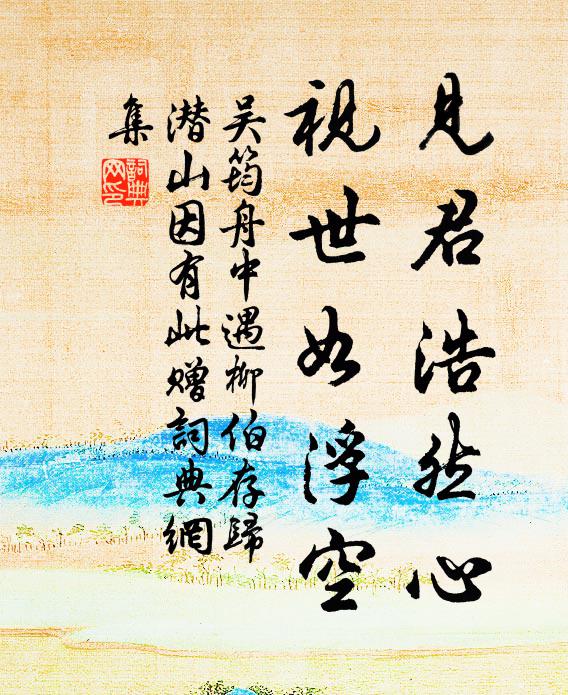 見君浩然心
視世如浮空
吴筠舟中遇柳伯存歸
潜山因有此贈詞典網
集
詞典
网印